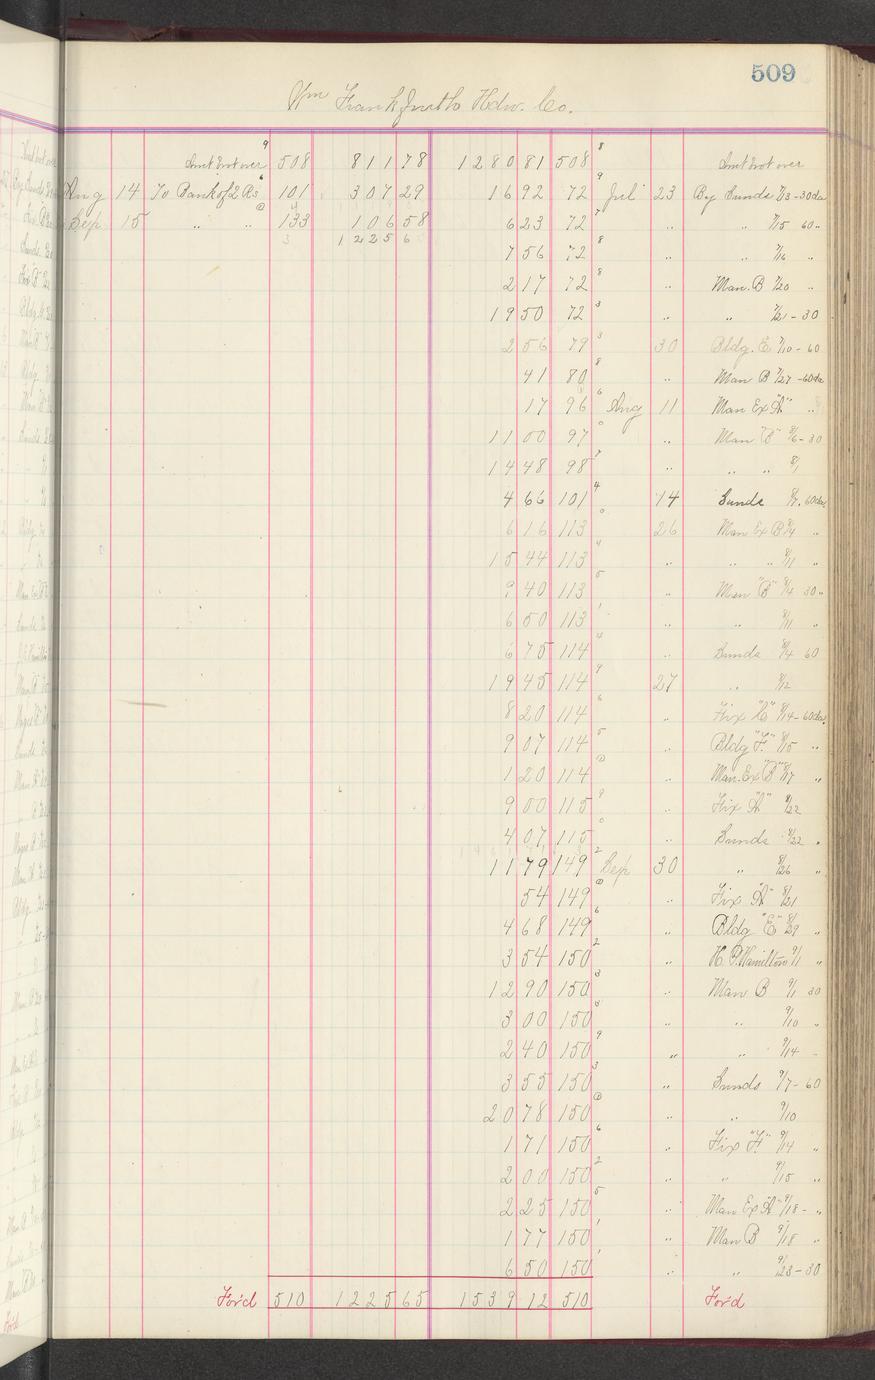 509
Wm Frankfurth Hdw. Co.
Amt brot over 9 508 811 78 1280 81 508 8 Amt brot over
Aug 14 To Bank of 2 Rs 6 101 307 29 16 92 72 9 Jul 23 By Sunds 7/13 - 30 da
Sep 15 " " 0 133 106 58 6 23 72 7 " " 7/15 60 "
3 1225 6 7 56 72 8 " " 7/16 "
2 17 72 8 " Man. B 7/20 "
19 50 72 3 " " 7/21 - 30
2 56 79 3 30 Bldg. E 7/10 - 60
41 80 8 " Man B 7/27 - 60 da
17 96 6 Aug 11 Man Ex "A" "
11 00 97 0 " Man "B" 8/6 - 30
14 48 98 7 " " " 8/1
4 66 101 4 14 Sunds 8/7. 60 da
6 16 113 0 26 Man Ex B 8/4 "
15 44 113 4 " " " 8/11 "
9 40 113 5 " Man "B" 8/4 30 "
6 50 113 1 " " 8/11 "
6 75 114 4 " Sunds 8/4 60
19 45 114 9 27 " 8/12
8 20 114 6 " Fix "C" 8/14 - 60 da.
9 07 114 5 " Bldg "F" 8/15 "
1 20 114 0 " Man. Ex "B" 8/17 "
9 00 115 9 " Fix "A" 8/22
4 07 115 0 " Sunds 8/22 "
11 79 149 2 Sep 30 " 8/26 "
54 149 0 " Fix "A" 8/21
4 68 149 6 " Bldg "E" 8/29 "
3 54 150 2 " H. P. Hamilton 9/1 "
12 90 150 3 " Man B 9/1 30
3 00 150 8 " " 9/10 "
2 40 150 9 " " 9/14 -
3 55 150 3 " Sunds 9/7 - 60
20 78 150 0 " " 9/10
1 71 150 6 " Fix "F" 9/14 "
2 00 150 2 " " 9/15 "
2 25 150 5 " Man Ex "A" 9/18 - "
1 77 150 1 " Man B 9/18 "
6 50 150 1 " " 9/23 - 30
For'd 510 1225 65 1539 12 510 For'd